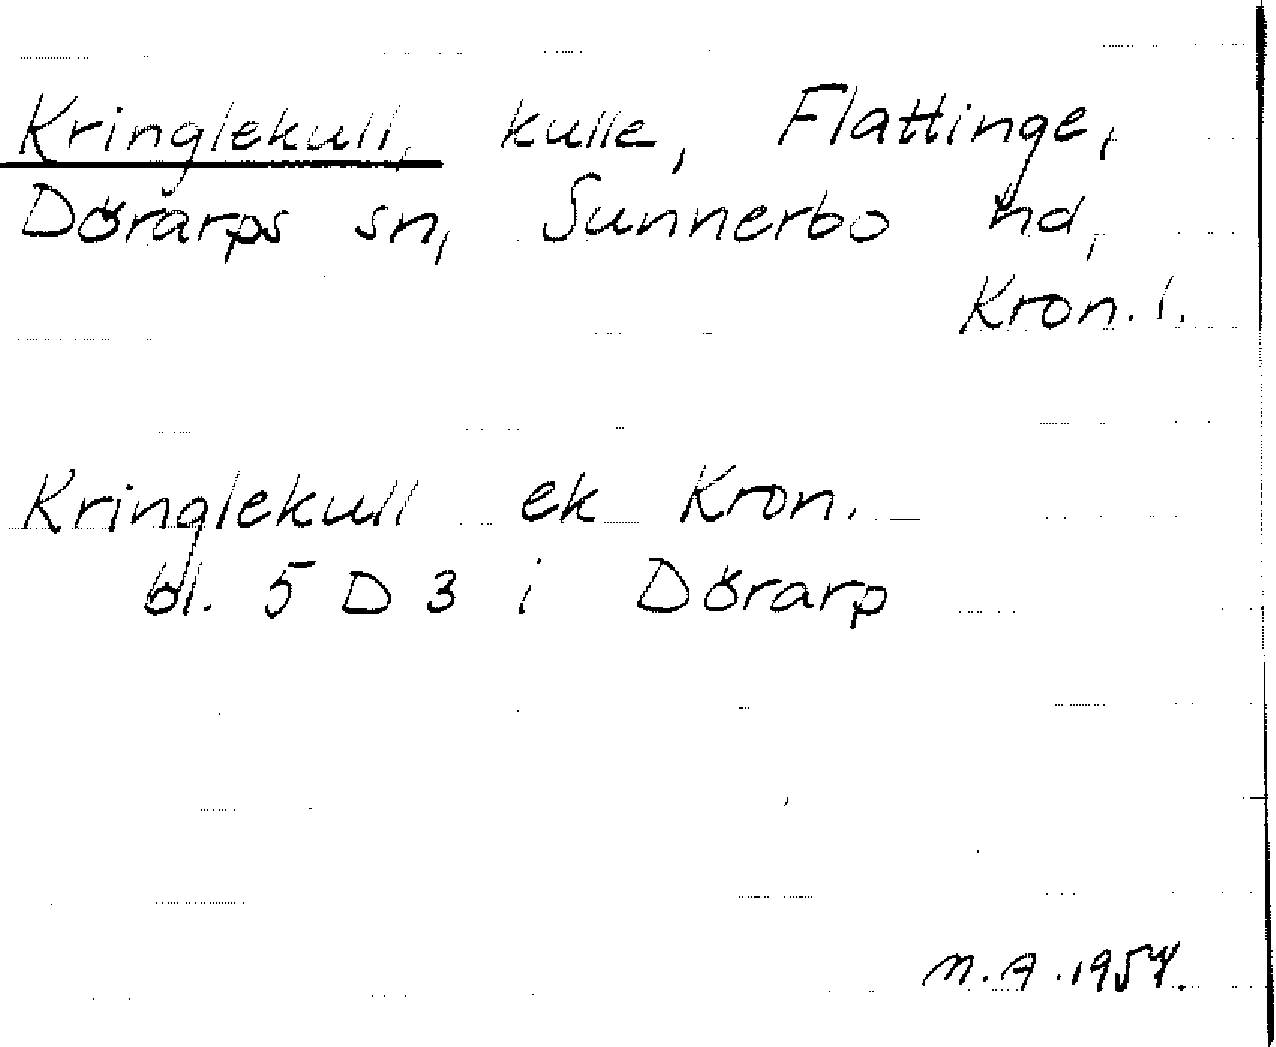 Kringlekull, kulle, Flattinge,
Dörarps sn, Sunnerbo hd,
Kron. l.
Kringlekull ek Kron.
bl. 5 D 3 i Dörarp
N.A. 1954.